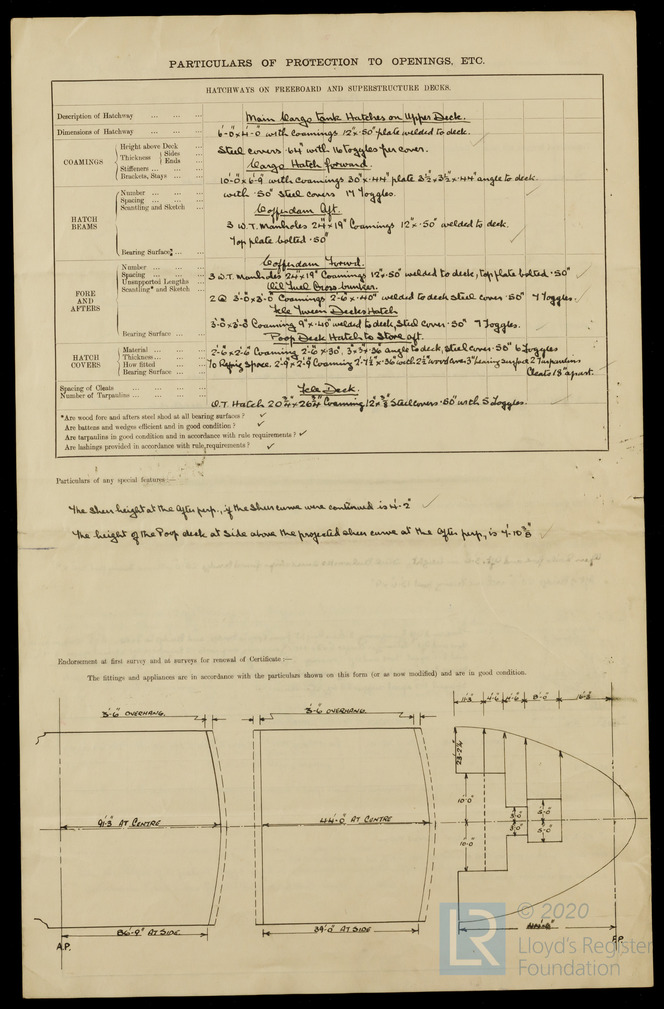 PARTICULARS OF PROTECTION TO OPENINGS, ETC.
HATCHWAYS ON FREEBOARD AND SUPERSTRUCTURE DECKS.
Description of Hatchway ... ... ... Main Cargo Tank Hatches on Upper Deck.
Dimensions of Hatchway ... ... 6'-0" x 4'-0" with Coamings 12" x .50" plate welded to deck.
COAMINGS
Height above Deck ...
Thickness { Sides ...
Ends ...
Stiffeners ... ...
Brackets, Stays ...
Steel covers .64" with 16 toggles per cover.
Cargo Hatch forward.
10'-0" x 6'-9" with coamings 30" x .44" plate 3½" x 3½" x .44" angle to deck.
HATCH BEAMS
Number ... ... ...
Spacing ... ... ...
Scantling and Sketch ...
Bearing Surface* ... ...
with .50" Steel covers 17 Toggles.
Cofferdam Aft.
3 W.T. Manholes 24" x 19" Coamings 12" x .50" welded to deck.
Top plate bolted .50"
Cofferdam Forwd.
FORE AND AFTERS
Number ... ... ...
Spacing ... ... ...
Unsupported Lengths
Scantling* and Sketch ...
Bearing Surface ... ...
3 W.T. Manholes 24" x 19" Coamings 12" x .50" welded to deck, top plate bolted .50"
Oil Fuel Cross-bunker.
2 @ 3'-0" x 3'-0" Coamings 2'-6" x .40" welded to deck Steel cover .50" 7 Toggles.
Fcle Tween Decks Hatch
3'-0" x 3'-3" Coaming 9" x .40" welded to deck, Steel cover .50" 7 Toggles.
Poop Deck Hatch to Store aft.
HATCH COVERS
Material ... ... ...
Thickness ... ... ...
How fitted ... ...
Bearing Surface ... ...
2'-6" x 2'-6" Coaming 2'-6" x .30", 3" x 3" x .36 angle to deck, steel cover .50" 6 Toggles
2'-9" x 2'-9" Coaming 2'-7½" x .36 with 2½" wood cover 3" bearing surface 2 Tarpaulins
Cleats 18" apart.
Spacing of Cleats ... ...
Number of Tarpaulins ... ...
Fcle Deck.
W.T. Hatch 20¾" x 26¾" Coaming 12" x ⅜" Steel covers .50" with 5 Toggles.
*Are wood fore and afters steel shod at all bearing surfaces? ✓
Are battens and wedges efficient and in good condition? ✓
Are tarpaulins in good condition and in accordance with rule requirements? ✓
Are lashings provided in accordance with rule requirements? ✓
Particulars of any special features:—
The Sheer height at the After perp., if the Sheer curve were continued is 4'-2" ✓
The height of the Poop deck at Side above the projected sheer curve at the After perp, is 7'-10⅜" ✓
Endorsement at first survey and at surveys for renewal of Certificate:—
The fittings and appliances are in accordance with the particulars shown on this form (or as now modified) and are in good condition.
3'-6" OVERHANG.
3'-6" OVERHANG.
11'-3" 4'-6" 4'-6" 8'-0" 16'-3"
10'-0"
3'-0"
5'-0"
91'-3" AT CENTRE
44'-0" AT CENTRE
10'-0"
3'-0"
5'-0"
86'-9" AT SIDE
39'-0" AT SIDE
A.P.
F.P.
© 2020
LR
Lloyd's Register
Foundation